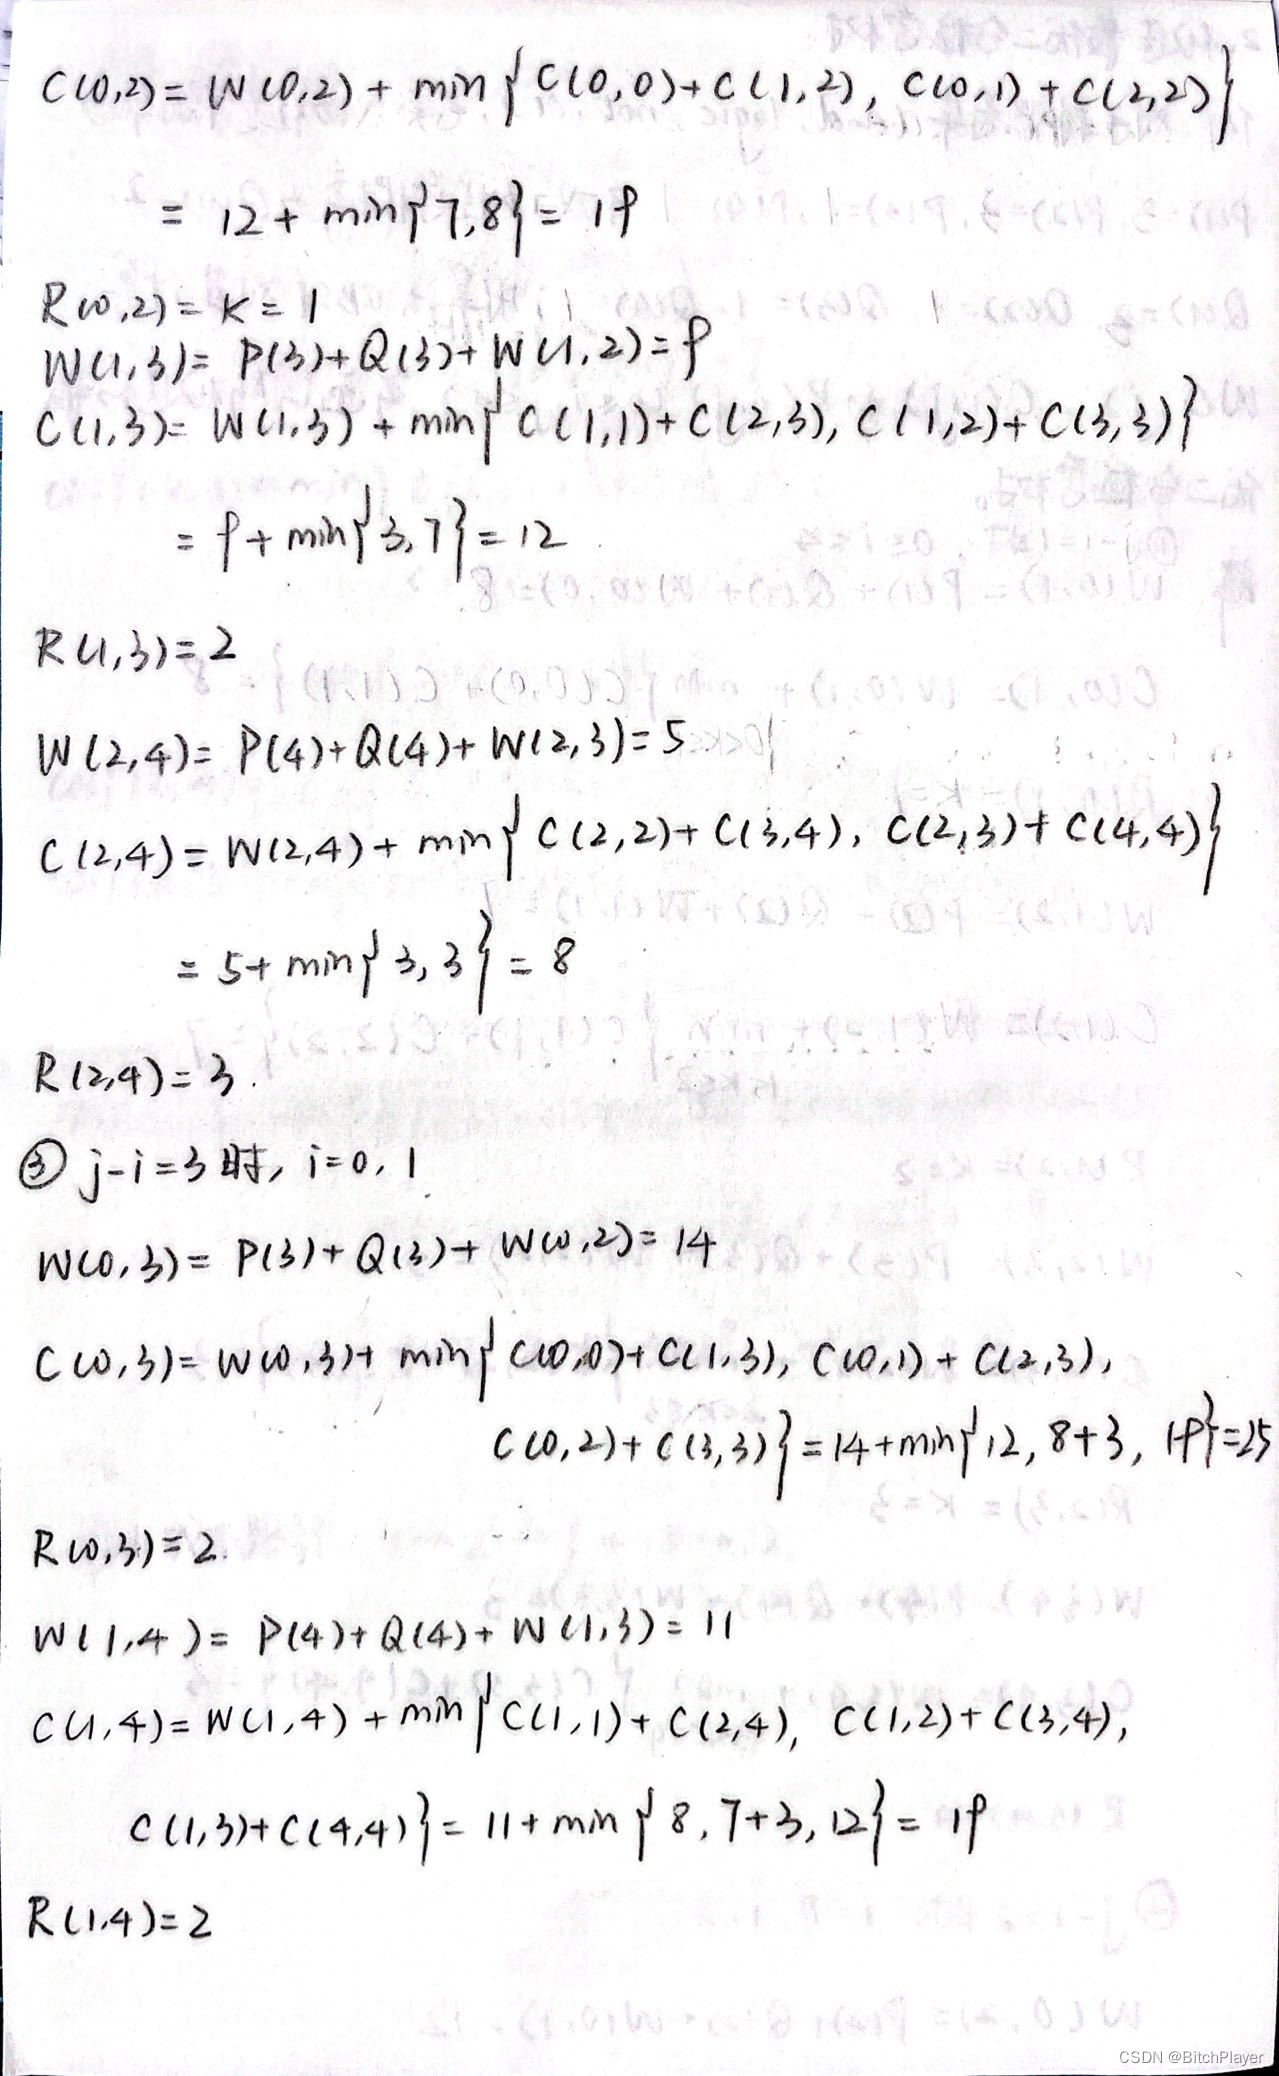 C(0,2) = W(0,2) + min{C(0,0)+C(1,2), C(0,1)+C(2,2)}
= 12 + min{7,8} = 19
R(0,2) = K = 1
W(1,3) = P(3)+Q(3)+W(1,2) = 9
C(1,3) = W(1,3) + min{C(1,1)+C(2,3), C(1,2)+C(3,3)}
= 9 + min{3,7} = 12
R(1,3) = 2
W(2,4) = P(4)+Q(4)+W(2,3) = 5
C(2,4) = W(2,4) + min{C(2,2)+C(3,4), C(2,3)+C(4,4)}
= 5 + min{3,3} = 8
R(2,4) = 3.
③ j-i=3时, i=0, 1
W(0,3) = P(3)+Q(3)+W(0,2) = 14
C(0,3) = W(0,3)+ min{C(0,0)+C(1,3), C(0,1)+C(2,3),
C(0,2)+C(3,3)} = 14+min{12, 8+3, 19}=25
R(0,3) = 2
W(1,4) = P(4)+Q(4)+W(1,3) = 11
C(1,4) = W(1,4) + min{C(1,1)+C(2,4), C(1,2)+C(3,4),
C(1,3)+C(4,4)} = 11+min{8, 7+3, 12} = 19
R(1,4) = 2
CSDN @BitchPlayer